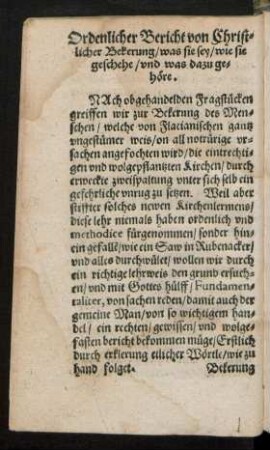 Ordenlicher Bericht von Christ-
licher Bekerung/ was sie sey/ wie sie
geschehe/ vnd was dazu ge-
höre.
NAch obgehandelden Fragstücken
greiffen wir zur Bekerung des Men-
schen/ welche von Flacianischen gantz
vngestümer weis/ on all notrürige vr-
sachen angefochten wird/ die eintrechti-
gen vnd wolgepflantzten Kirchen/ durch
erweckte zweispaltung vnter sich selb ein
gefehrliche vnrug zu setzen. Weil aber
stiffter solches newen Kirchenlermens/
diese lehr niemals haben ordenlich vnd
methodice fürgenommen/ sonder hin-
ein gefalle/ wie ein Saw in Rubenacker/
vnd alles durchwület/ wollen wir durch
ein richtige lehrweis den grund ersuch-
en/ vnd mit Gottes hülff/ Fundamen-
taliter, von sachen reden/ damit auch der
gemeine Man/ von so wichtigem han-
del/ ein rechten/ gewissen/ vnd wolge-
fasten bericht bekommen müge/ Erstlich
durch erklerung etlicher Wörtle/ wie zu
hand folget.
Bekerung